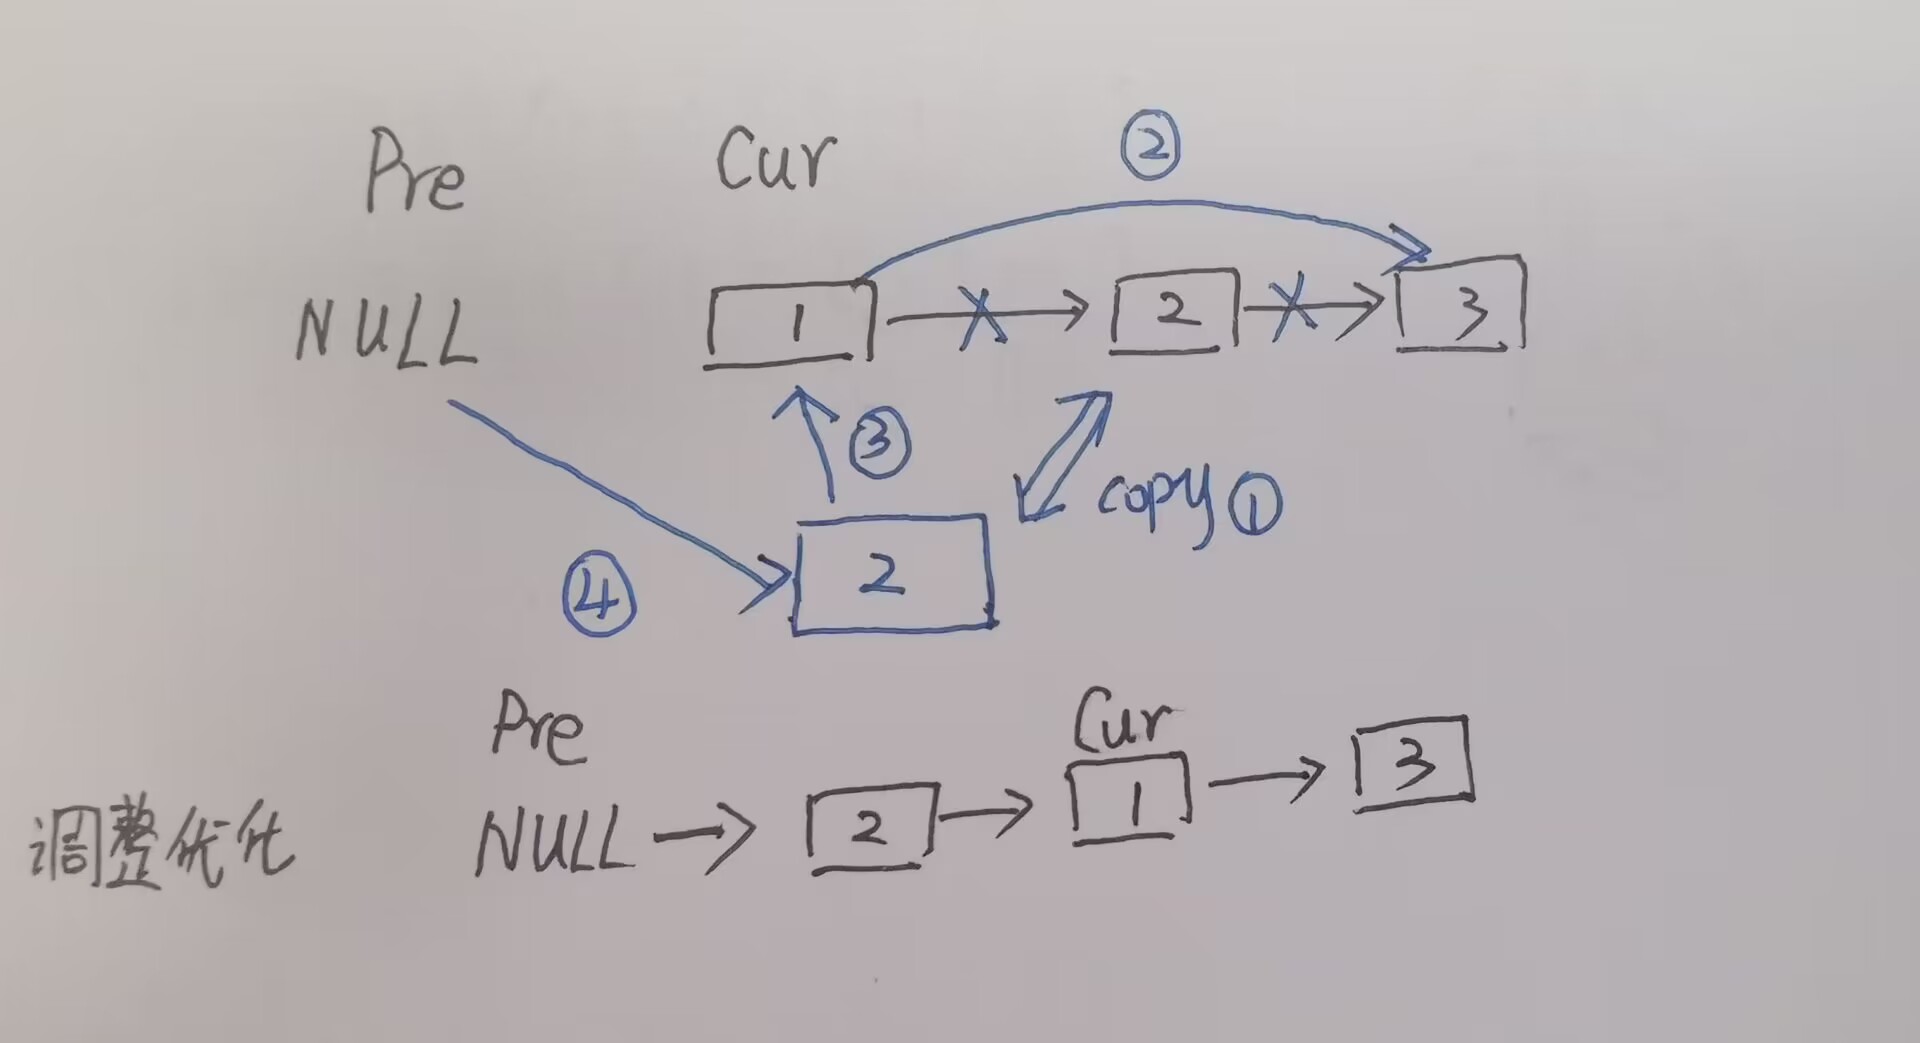 Pre Cur ②
NULL 1 2 3
③
copy ①
④ 2
Pre Cur
调整优化 NULL 2 1 3